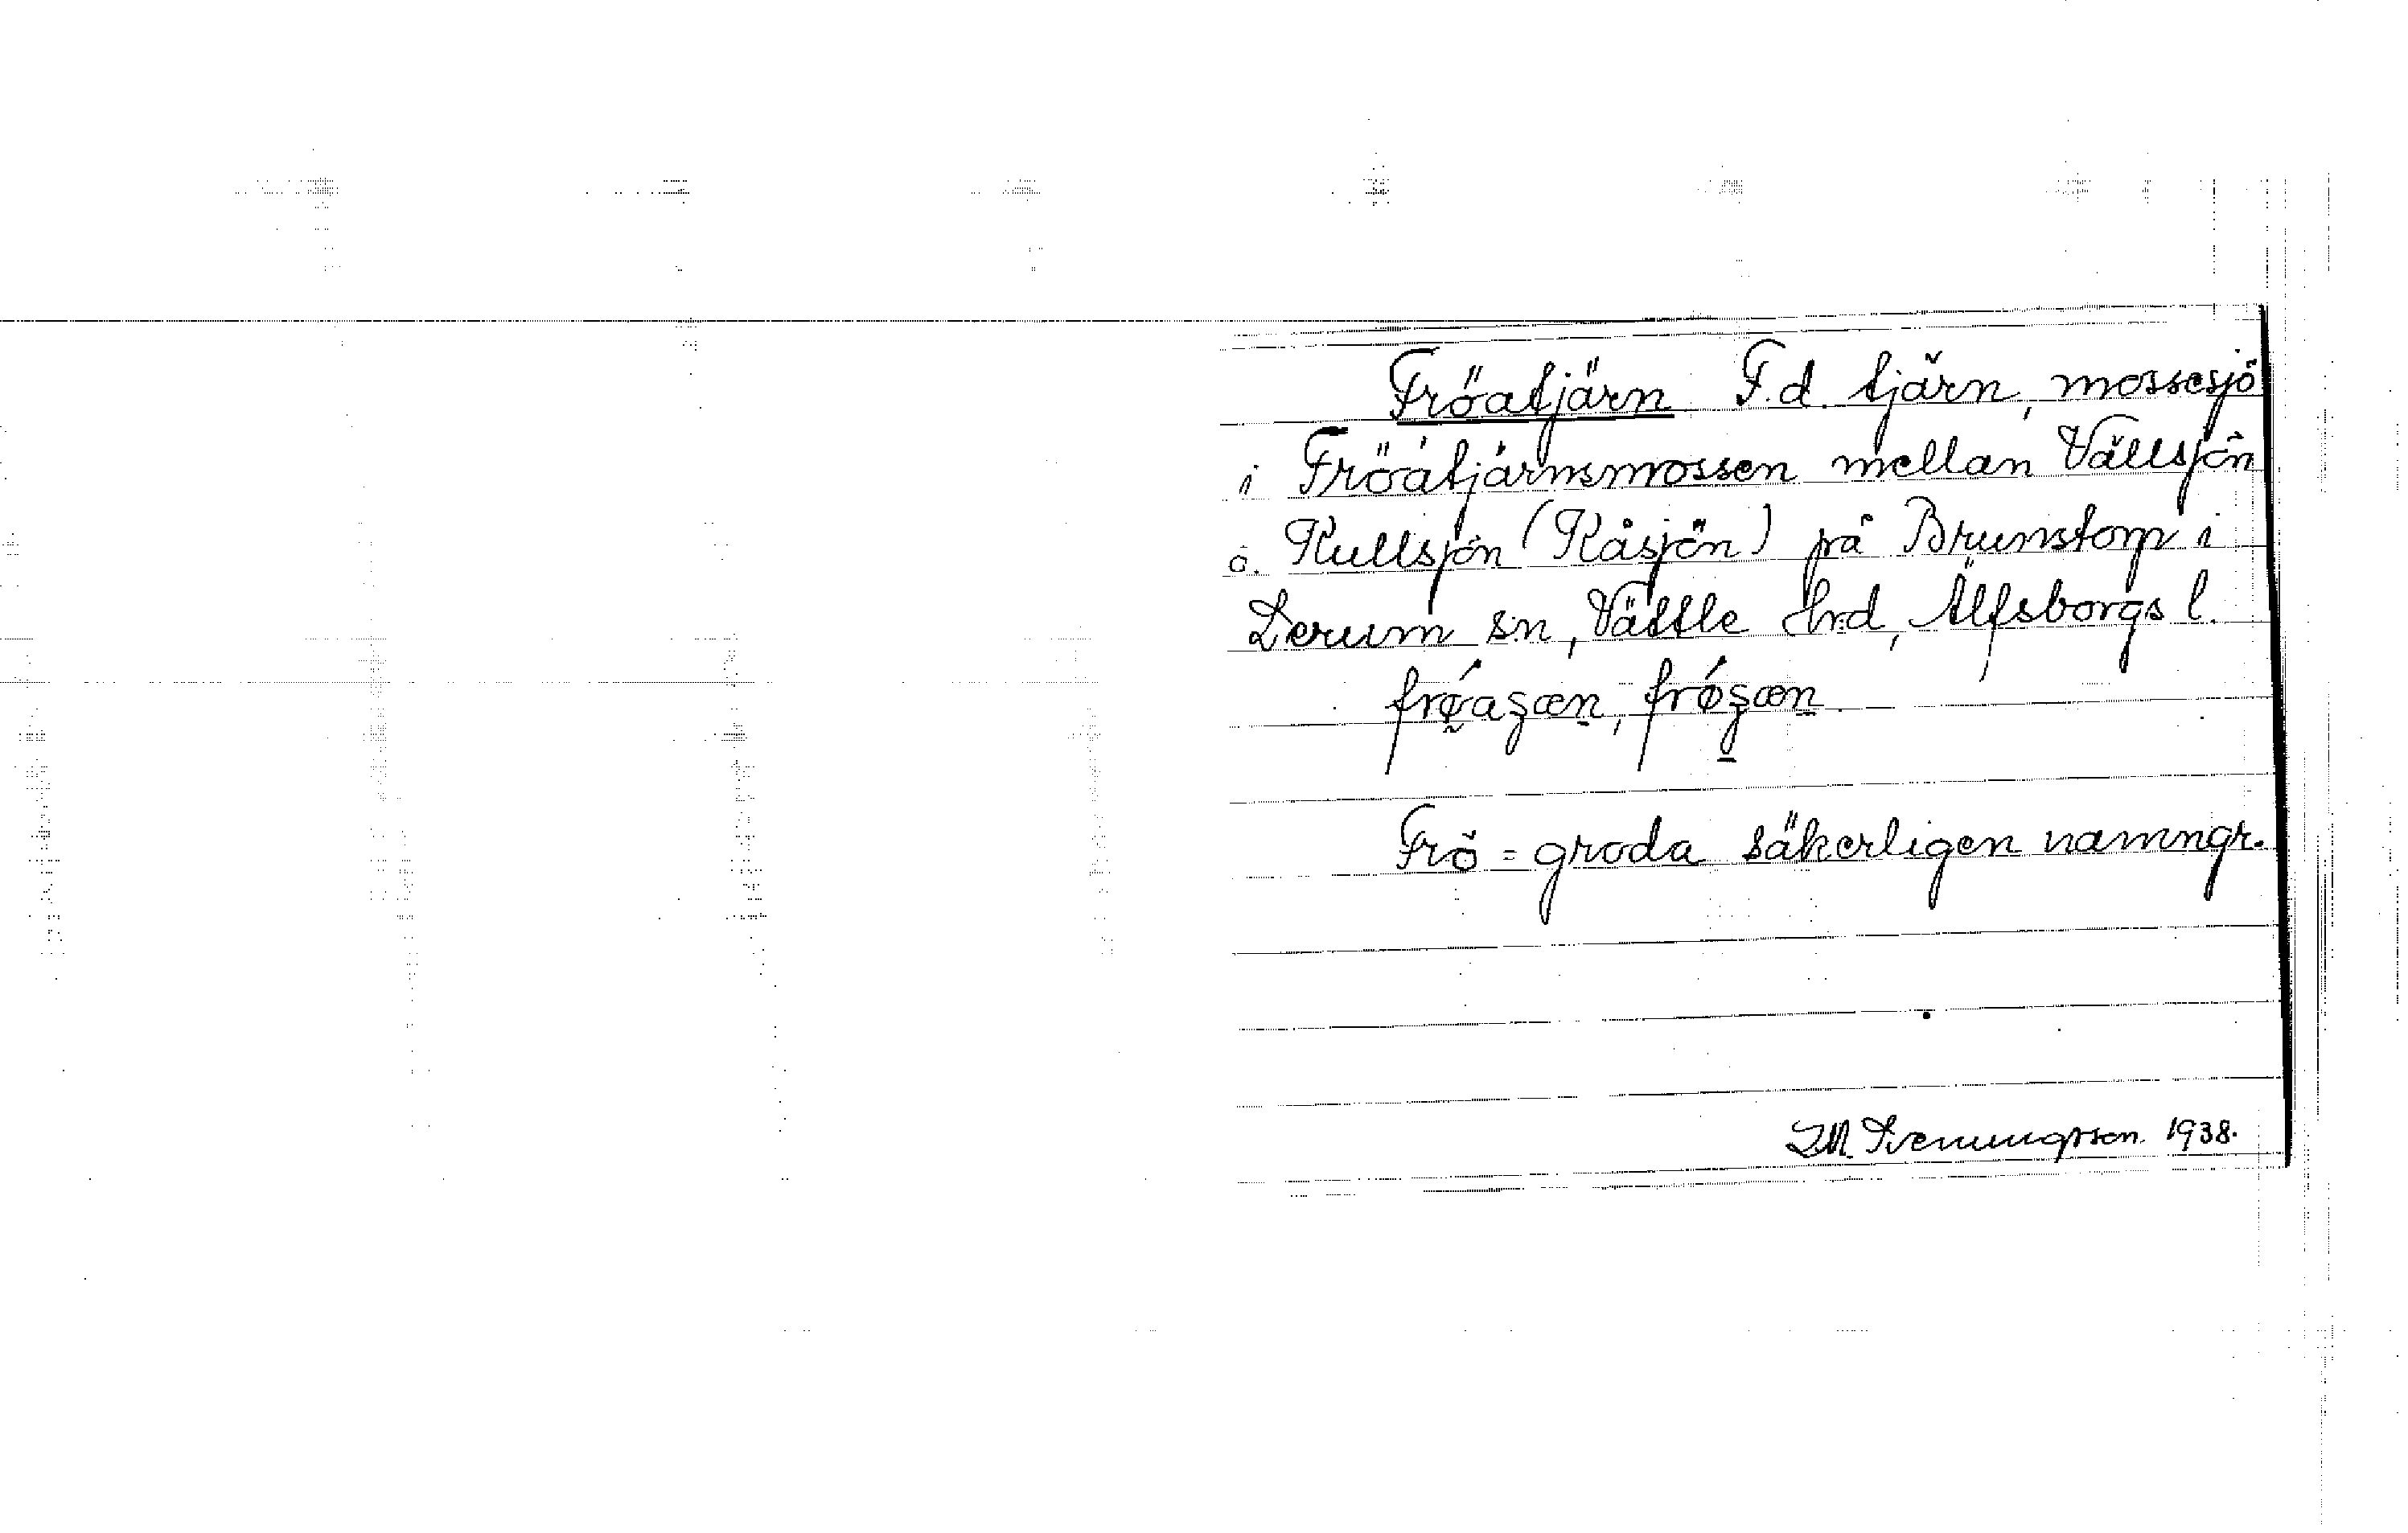 Fröatjärn F.d. tjärn, mossesjö
i Fröatjärnsmossen mellan Vällsjön
o. Kullsjön (Kåsjön) på Brunstorp i
Lerum sn, Vättle hrd, Älfsborgs l.
frǿaʂæn, frǿʂæn
Frö = groda säkerligen namngr.
Svenungsson 1938.